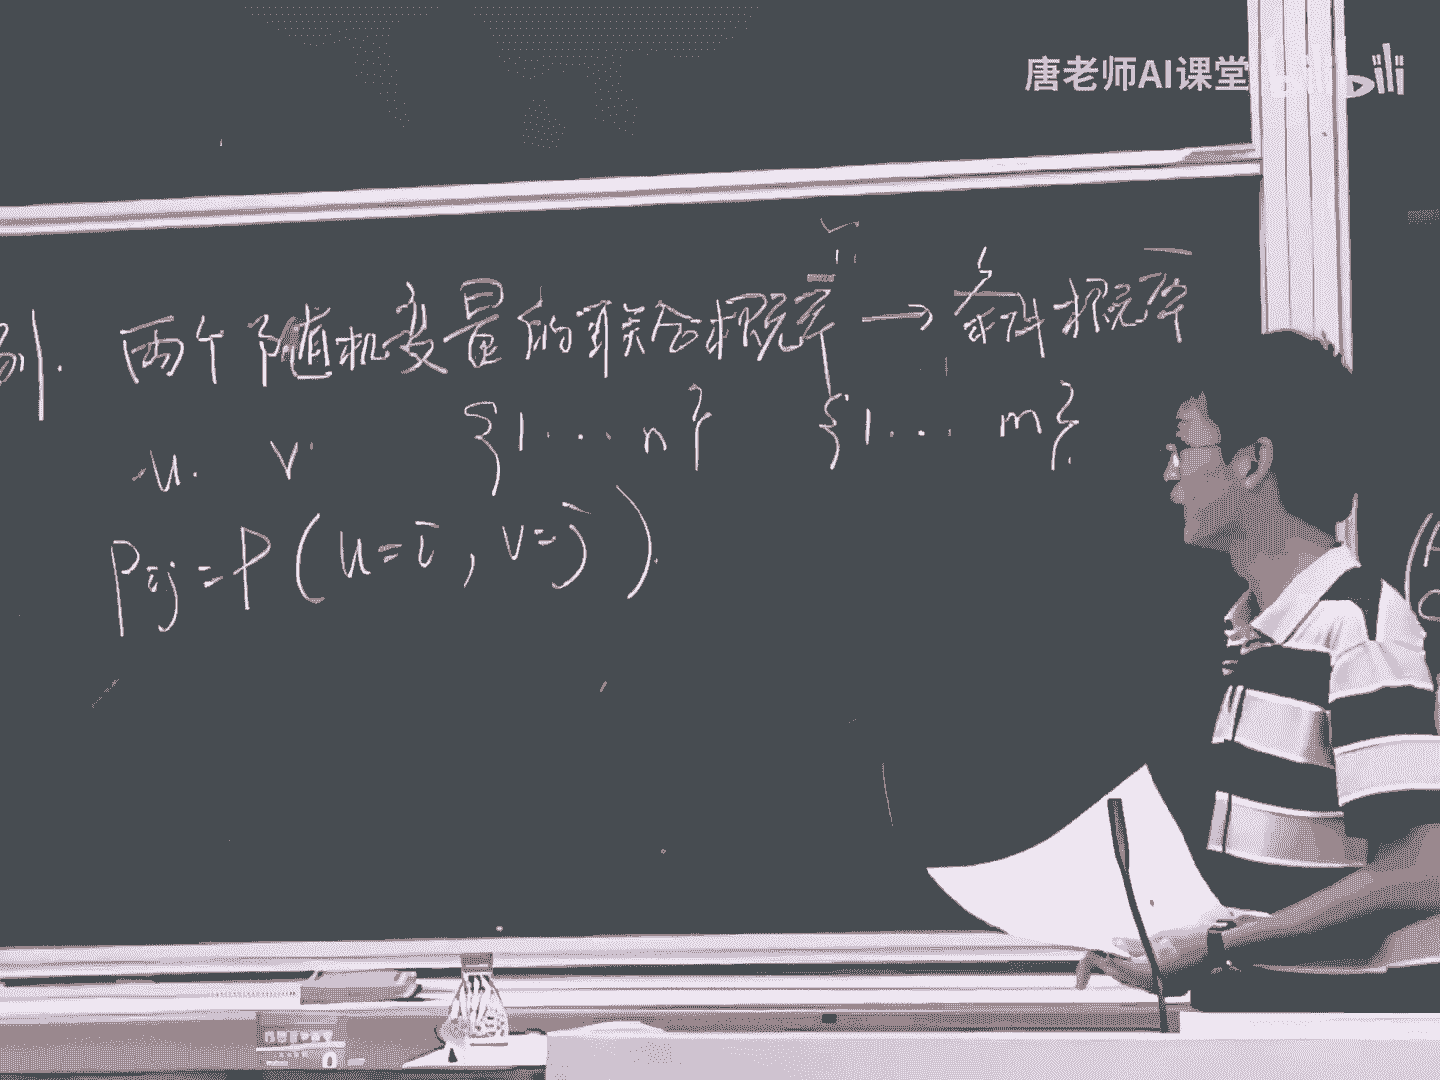 唐老师AI课堂 bilibili
例. 两个随机变量的联合概率 → 条件概率
u. v. {1 ... n} {1 ... m}
Pij = P(u=i, v=j)